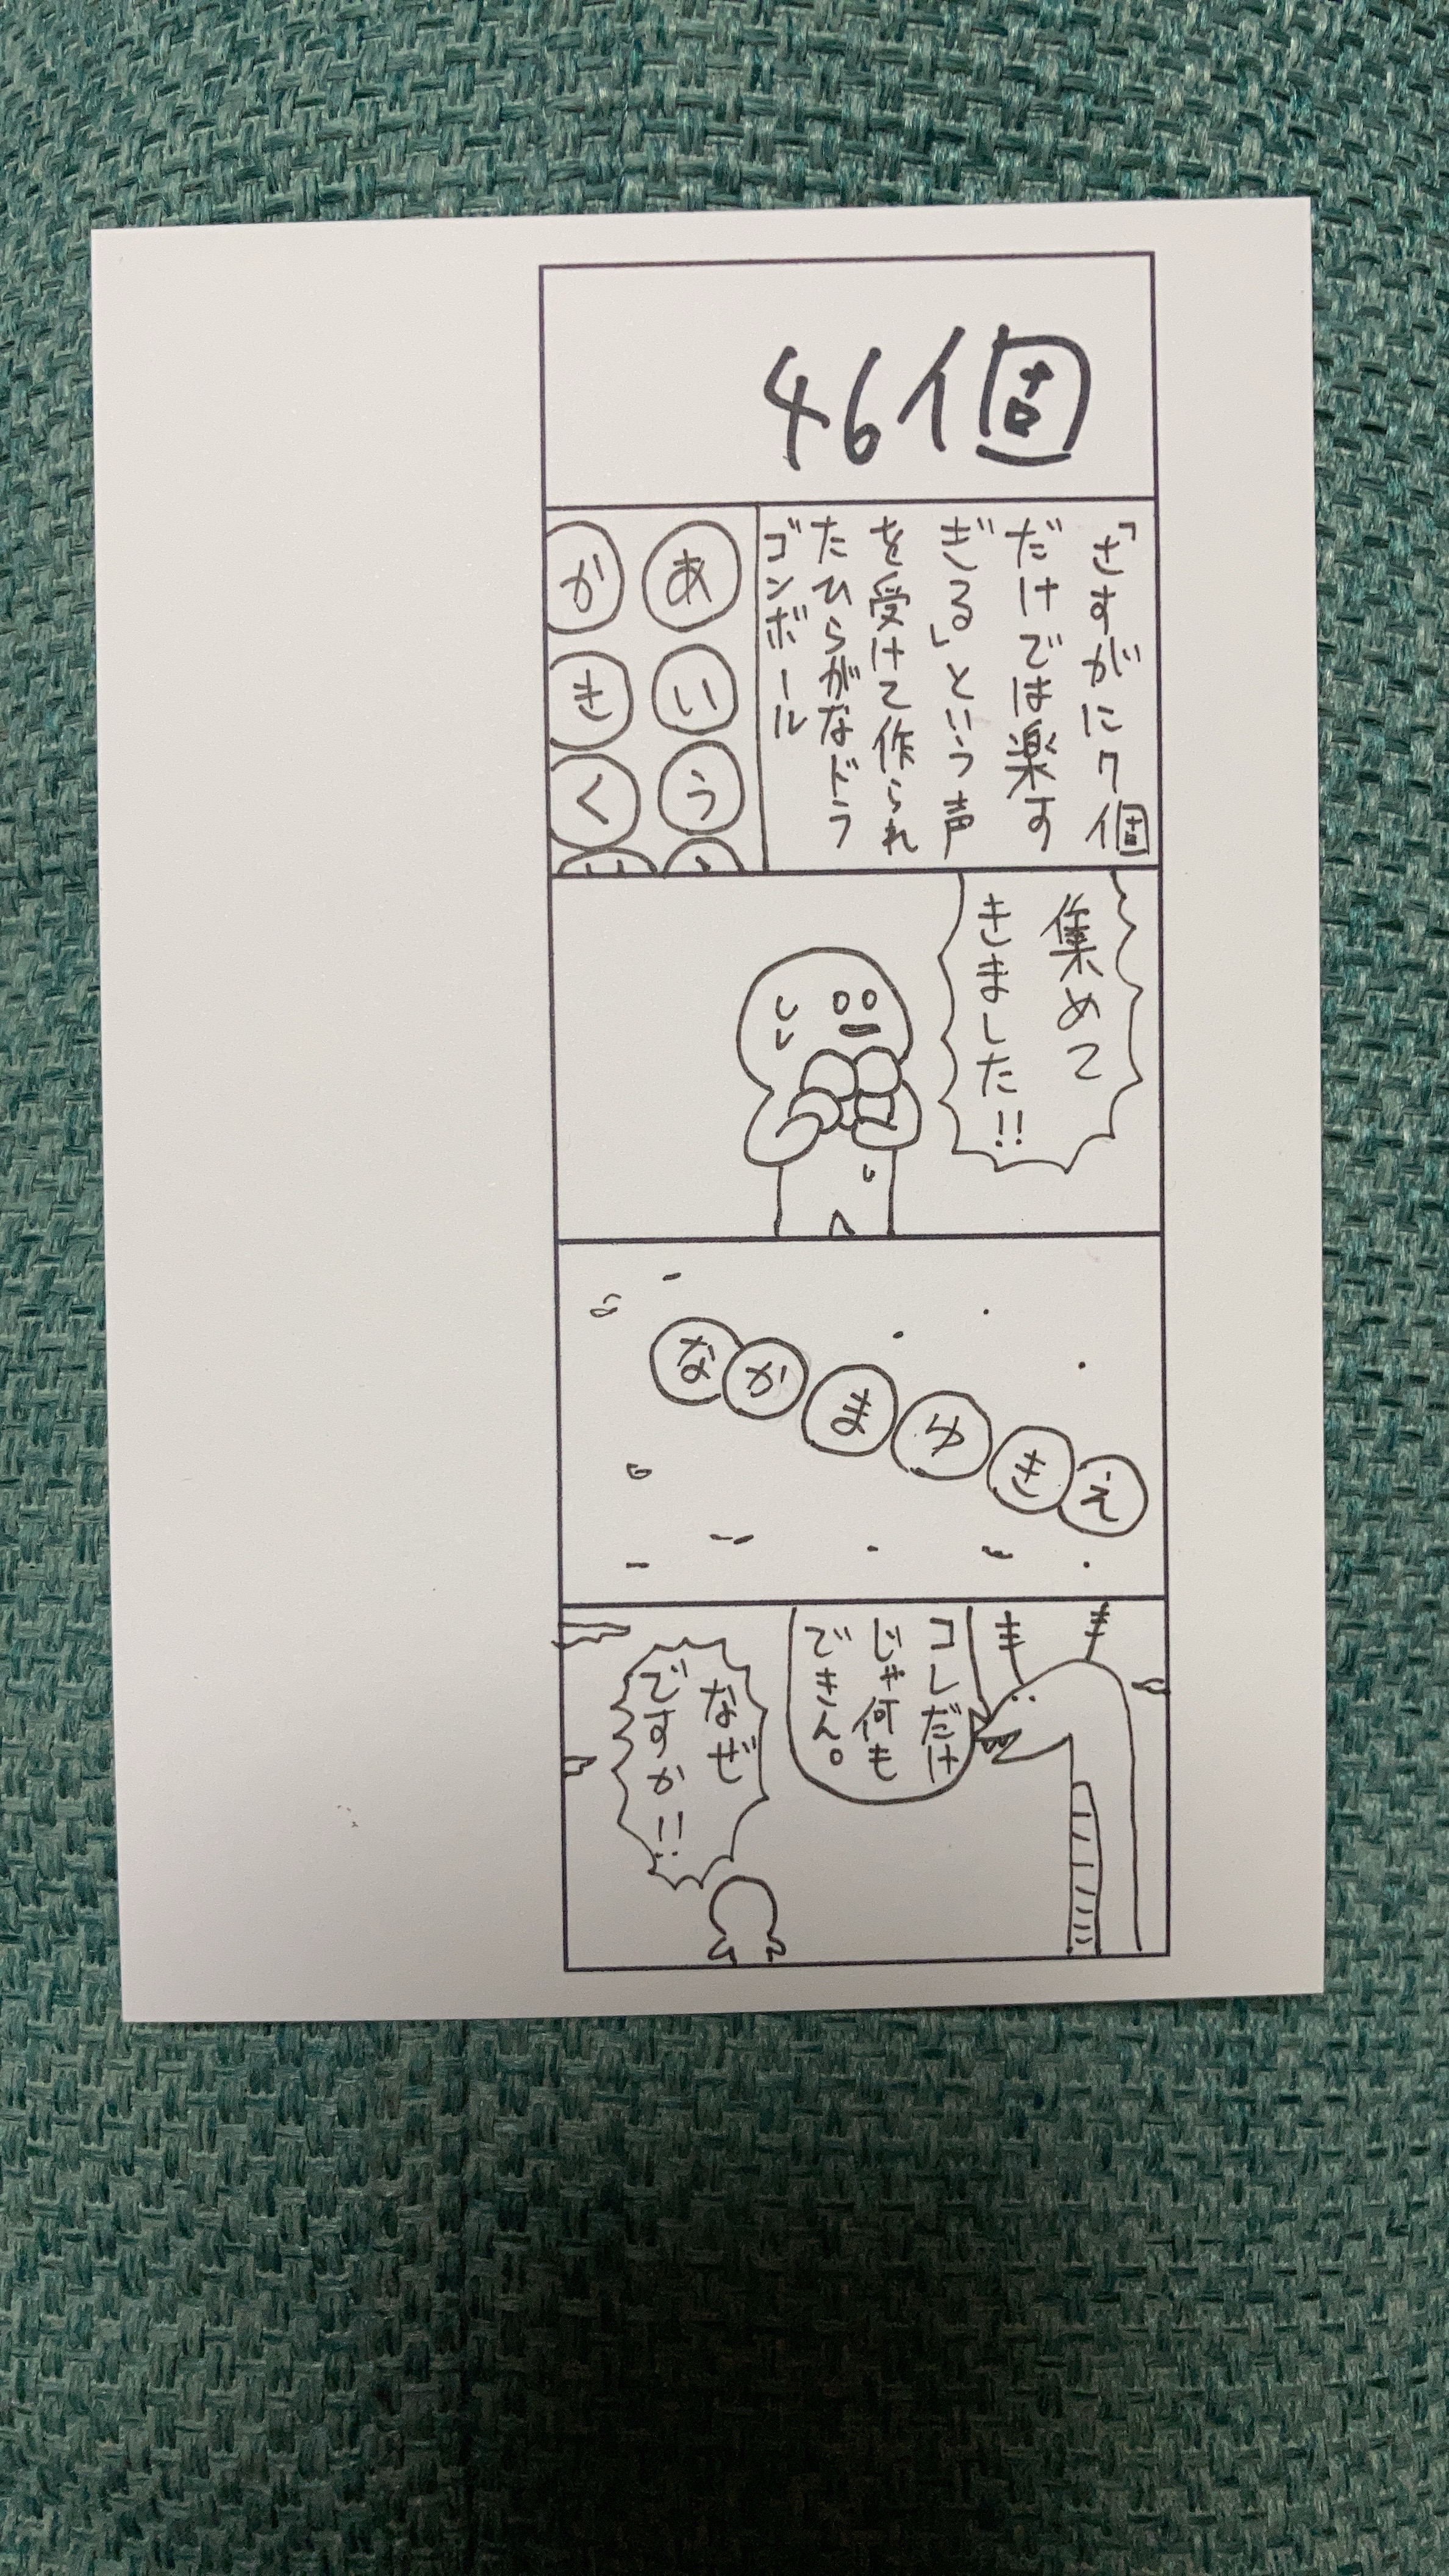 46個
「さすがに7個
だけでは楽す
ぎる」という声
を受けて作られ
たひらがなドラ
ゴンボール
あ
い
う
か
き
く
集めて
きました!!
なかまゆきえ
コレだけ
じゃ何も
できん。
なぜ
ですか!!